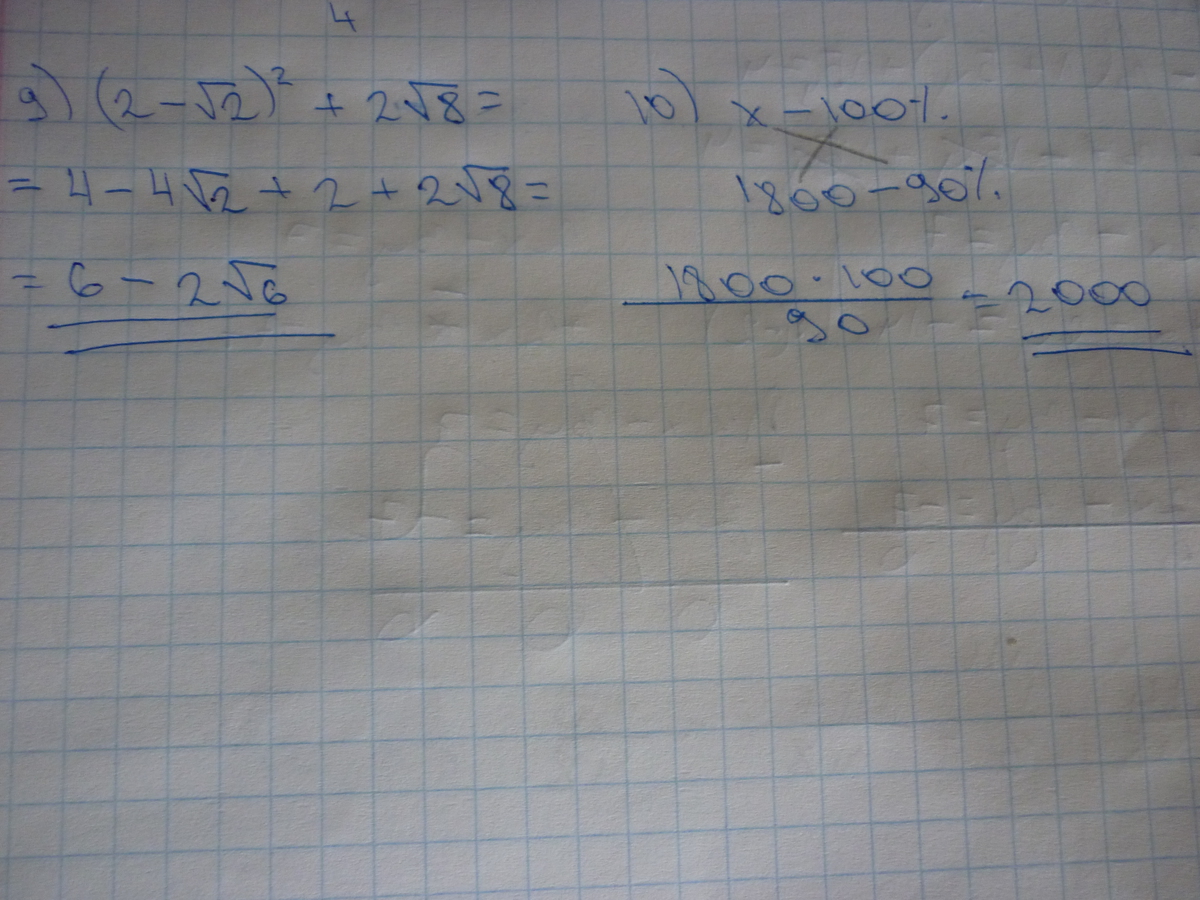 4
9) (2 - √2)² + 2√8 =
= 4 - 4√2 + 2 + 2√8 =
= 6 - 2√6
10) x - 100%.
1800 - 90%.
1800 · 100
90
= 2000